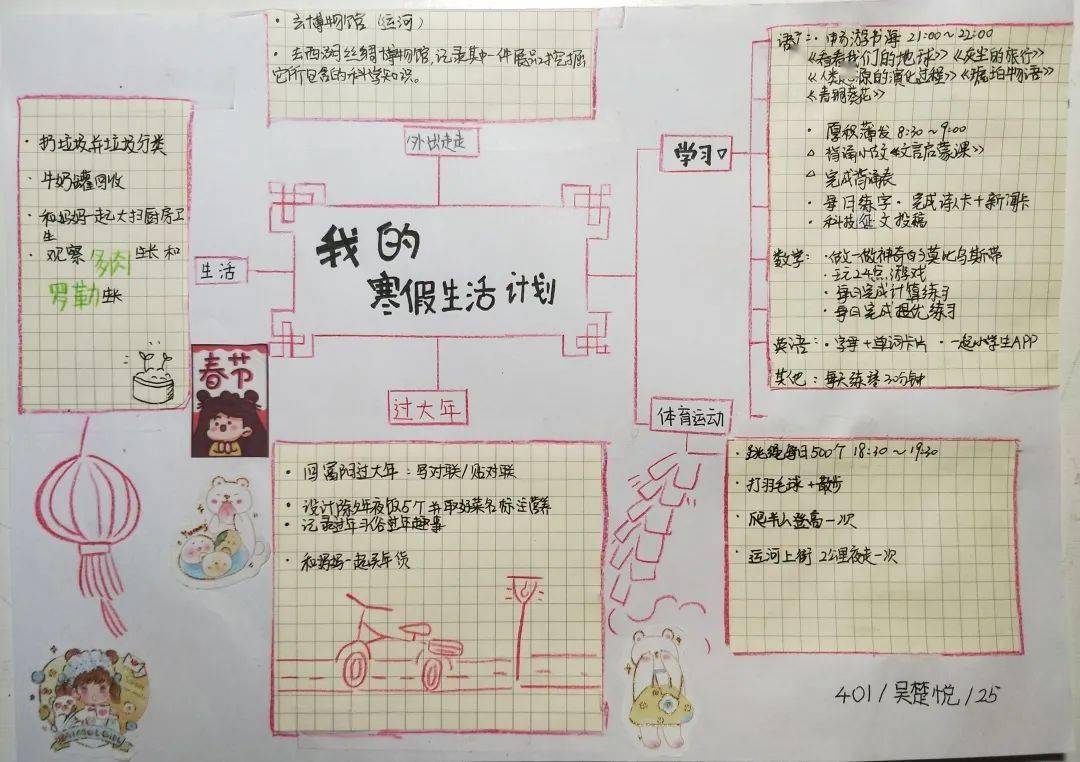 我的
寒假生活计划
外出走走
· 去博物馆（运河）
· 去西湖丝绸博物馆,记录其中一件展品,挖掘
它所包含的科学知识。
生活
· 扔垃圾并垃圾分类
· 牛奶罐回收
· 和妈妈一起大扫厨房卫
生
· 观察多肉生长和
罗勒生长
春节
过大年
· 回富阳过大年：写对联/贴对联
· 设计除夕年夜饭5个并取好菜名标注营养
· 记录过年习俗过年趣事
· 和妈妈一起买年货
学习
语文：· 畅游书海 21:00～22:00
《看看我们的地球》《灰尘的旅行》
《人类起源的演化过程》《琥珀物语》
《青铜葵花》
· 厚积薄发 8:30～9:00
△ 背诵小古文《文言启蒙课》
△ 完成背诵表
· 每日练字 · 完成诗人卡+新词卡
· 科技征文投稿
数学： · 做一做神奇的莫比乌斯带
· 玩24点游戏
· 每日完成计算练习
· 每日完成提优练习
英语： · 字母+单词卡片 · 一起小学生APP
其他：每天练琴30分钟
体育运动
· 跳绳每日500个 18:30～19:30
· 打羽毛球+散步
· 爬半山登高一次
· 运河上街 2公里夜走一次
401/吴楚悦/25